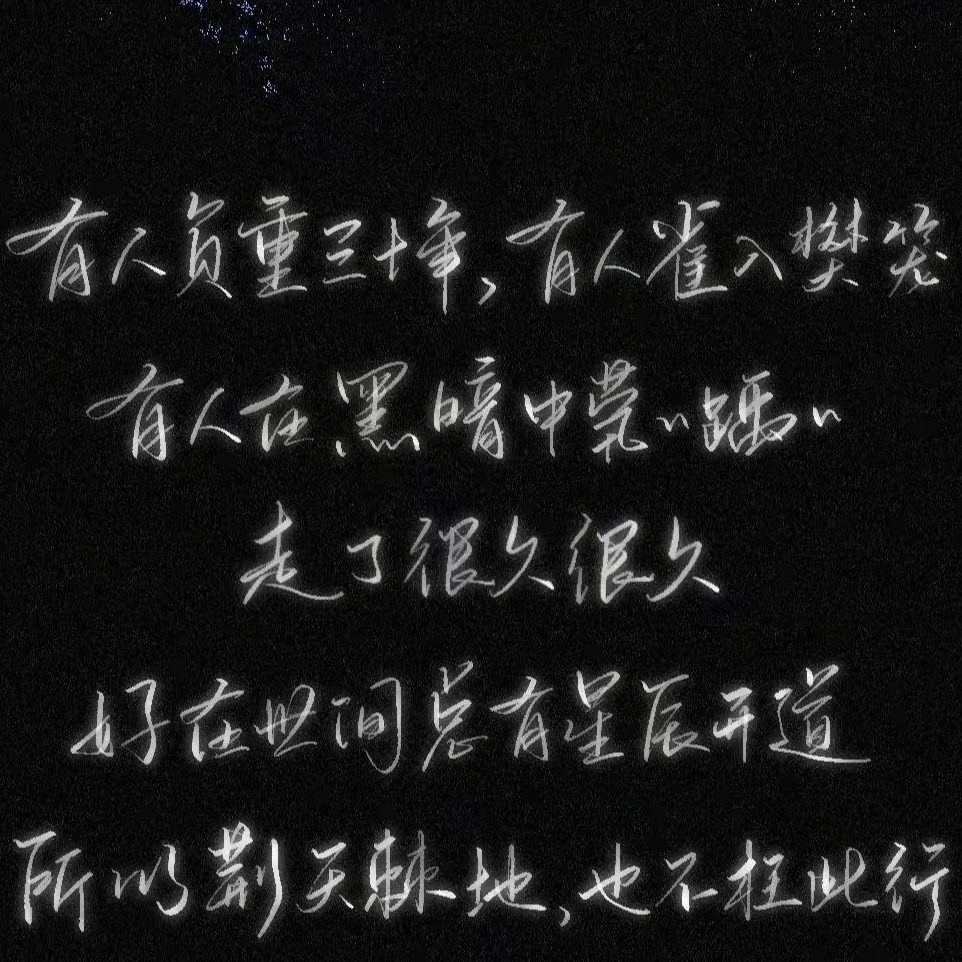 有人负重三十年，有人雀入樊笼
有人在黑暗中茕〃踽〃
走了很久很久
好在世间总有星辰开道
所以荆天棘地，也不枉此行